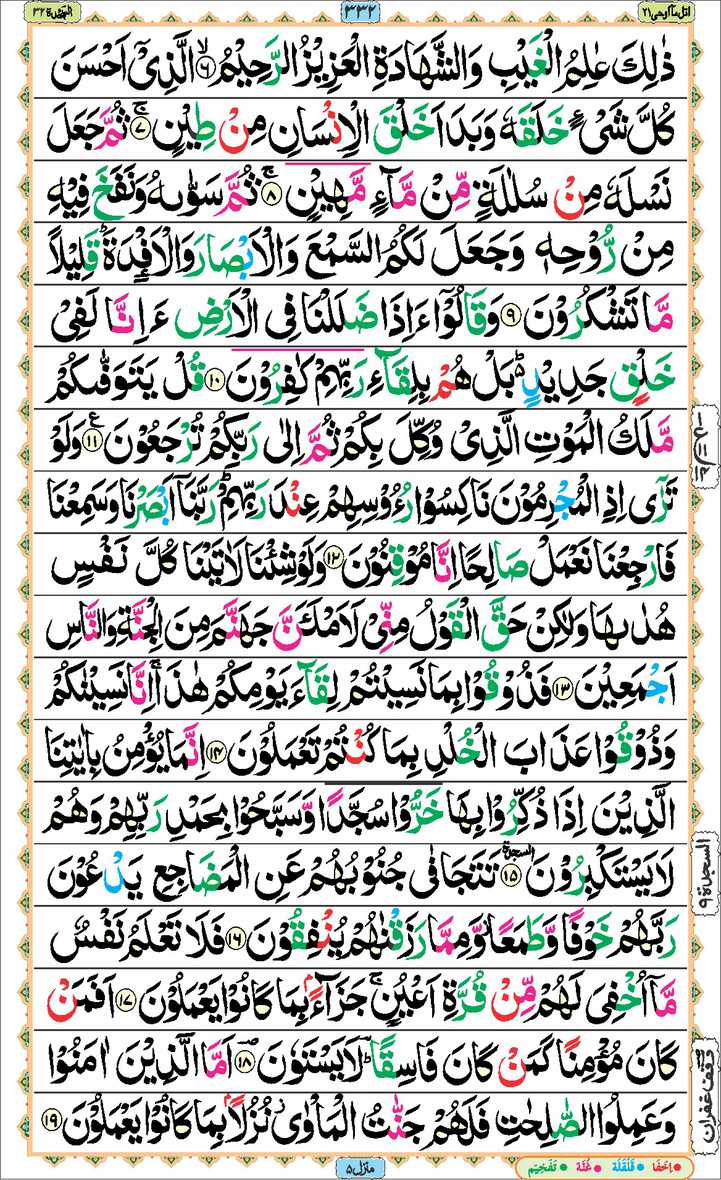 اتل مآ اوحی ۲۱
۳۳۲
السجدة ۳۲
ذٰلِكَ عٰلِمُ الْغَیْبِ وَالشَّهَادَةِ الْعَزِیْزُ الرَّحِیْمُ ۙ﴿۶﴾ الَّذِیْۤ اَحْسَنَ
كُلَّ شَیْءٍ خَلَقَهٗ وَبَدَاَ خَلْقَ الْاِنْسَانِ مِنْ طِیْنٍ ۚ﴿۷﴾ ثُمَّ جَعَلَ
نَسْلَهٗ مِنْ سُلٰلَةٍ مِّنْ مَّآءٍ مَّهِیْنٍ ۚ﴿۸﴾ ثُمَّ سَوّٰىهُ وَنَفَخَ فِیْهِ
مِنْ رُّوْحِهٖ وَجَعَلَ لَكُمُ السَّمْعَ وَالْاَبْصَارَ وَالْاَفْـِٕدَةَ ؕ قَلِیْلًا
مَّا تَشْكُرُوْنَ ﴿۹﴾ وَقَالُوْۤا ءَاِذَا ضَلَلْنَا فِی الْاَرْضِ ءَاِنَّا لَفِیْ
خَلْقٍ جَدِیْدٍ ؕ۬ بَلْ هُمْ بِلِقَآءِ رَبِّهِمْ كٰفِرُوْنَ ﴿۱۰﴾ قُلْ یَتَوَفّٰىكُمْ
مَّلَكُ الْمَوْتِ الَّذِیْ وُكِّلَ بِكُمْ ثُمَّ اِلٰی رَبِّكُمْ تُرْجَعُوْنَ ﴿۱۱﴾ع وَلَوْ
تَرٰۤی اِذِ الْمُجْرِمُوْنَ نَاكِسُوْا رُءُوْسِهِمْ عِنْدَ رَبِّهِمْ ؕ رَبَّنَاۤ اَبْصَرْنَا وَسَمِعْنَا
فَارْجِعْنَا نَعْمَلْ صَالِحًا اِنَّا مُوْقِنُوْنَ ﴿۱۲﴾ وَلَوْ شِئْنَا لَاٰتَیْنَا كُلَّ نَفْسٍ
هُدٰىهَا وَلٰكِنْ حَقَّ الْقَوْلُ مِنِّیْ لَاَمْلَـَٔنَّ جَهَنَّمَ مِنَ الْجِنَّةِ وَالنَّاسِ
اَجْمَعِیْنَ ﴿۱۳﴾ فَذُوْقُوْا بِمَا نَسِیْتُمْ لِقَآءَ یَوْمِكُمْ هٰذَا ۚ اِنَّا نَسِیْنٰكُمْ
وَذُوْقُوْا عَذَابَ الْخُلْدِ بِمَا كُنْتُمْ تَعْمَلُوْنَ ﴿۱۴﴾ اِنَّمَا یُؤْمِنُ بِاٰیٰتِنَا
الَّذِیْنَ اِذَا ذُكِّرُوْا بِهَا خَرُّوْا سُجَّدًا وَّسَبَّحُوْا بِحَمْدِ رَبِّهِمْ وَهُمْ
لَا یَسْتَكْبِرُوْنَ ﴿۱۵﴾ السجدة تَتَجَافٰی جُنُوْبُهُمْ عَنِ الْمَضَاجِعِ یَدْعُوْنَ
رَبَّهُمْ خَوْفًا وَّطَمَعًا وَّمِمَّا رَزَقْنٰهُمْ یُنْفِقُوْنَ ﴿۱۶﴾ فَلَا تَعْلَمُ نَفْسٌ
مَّاۤ اُخْفِیَ لَهُمْ مِّنْ قُرَّةِ اَعْیُنٍ ۚ جَزَآءًۢ بِمَا كَانُوْا یَعْمَلُوْنَ ﴿۱۷﴾ اَفَمَنْ
كَانَ مُؤْمِنًا كَمَنْ كَانَ فَاسِقًا ؕ لَا یَسْتَوٗنَ ﴿۱۸﴾ اَمَّا الَّذِیْنَ اٰمَنُوْا
وَعَمِلُوا الصّٰلِحٰتِ فَلَهُمْ جَنّٰتُ الْمَاْوٰی ؗ نُزُلًۢا بِمَا كَانُوْا یَعْمَلُوْنَ ﴿۱۹﴾
السجدة ۹
وقف غفران
منزل ۵
اِخفَا قَلقَلَة غُنَّة تَفخِیم